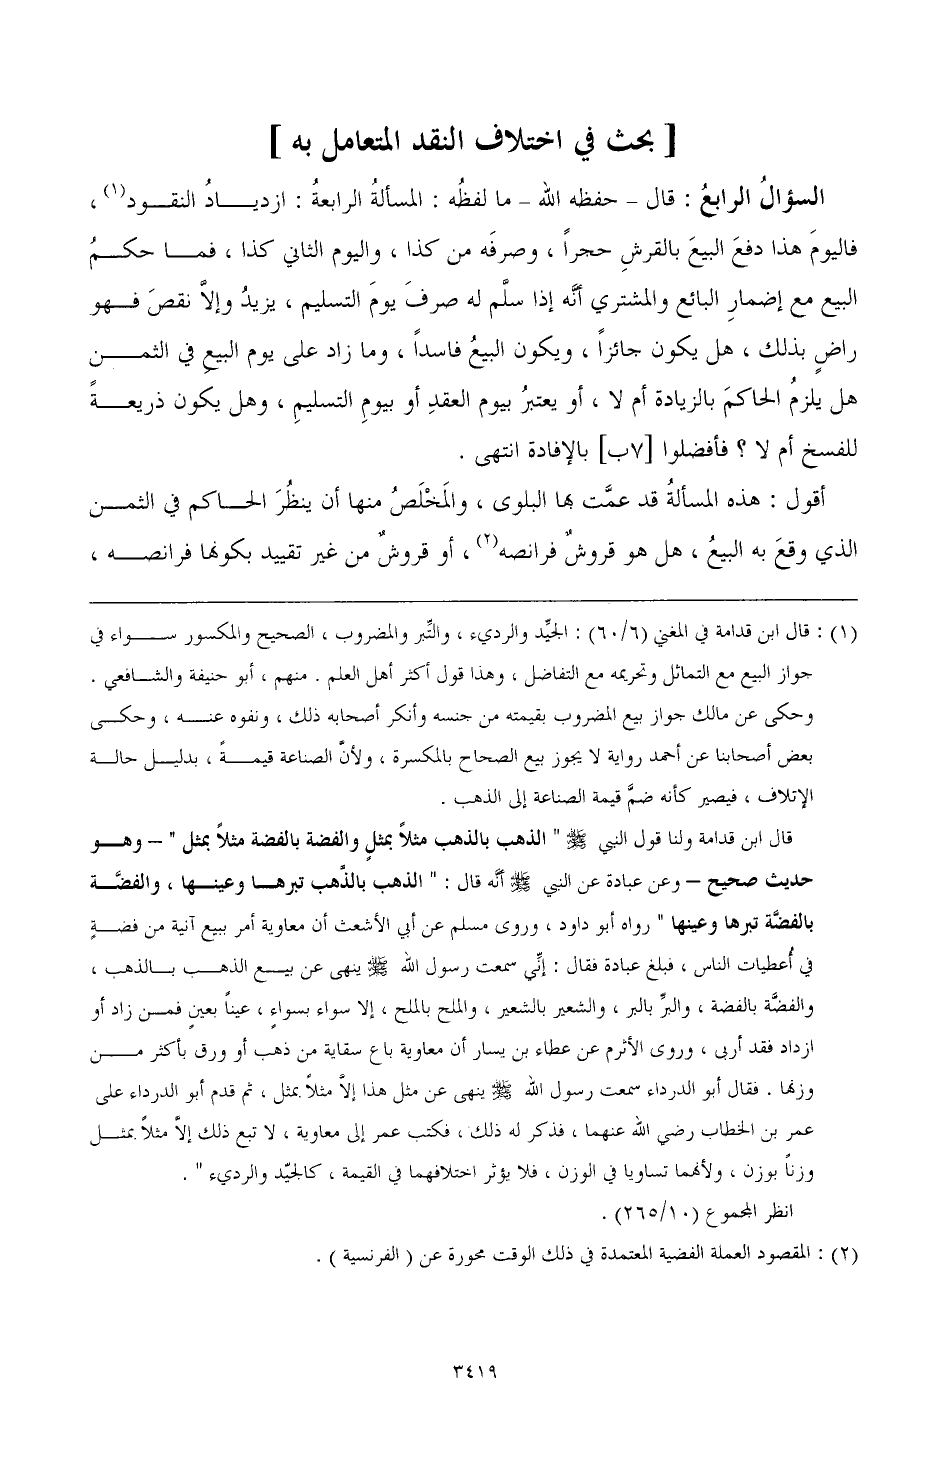 [ بحث في اختلاف النقد المتعامل به ]
السؤالُ الرابعُ : قال – حفظه الله – ما لفظُه : المسألةُ الرابعةُ : ازديادُ النقود(١) ،
فاليومَ هذا دفعَ البيعَ بالقرشِ حجراً ، وصرفَه من كذا ، واليوم الثاني كذا ، فما حكمُ
البيع مع إضمارِ البائع والمشتري أنَّه إذا سلَّم له صرفَ يومَ التسليم ، يزيدُ وإلاَّ نقصَ فهو
راضٍ بذلك ، هل يكون جائزاً ، ويكون البيعُ فاسداً ، وما زاد على يوم البيعِ في الثمن
هل يلزمُ الحاكمَ بالزيادة أم لا ، أو يعتبرُ بيوم العقدِ أو بيومِ التسليمِ ، وهل يكون ذريعةً
للفسخ أم لا ؟ فأفضلوا [٧ب] بالإفادة انتهى .
أقول : هذه المسألةُ قد عمَّت بها البلوى ، والَمخْلَصُ منها أن ينظُرَ الحاكم في الثمن
الذي وقعَ به البيعُ ، هل هو قروشٌ فرانصه(٢) ، أو قروشٌ من غير تقييد بكونها فرانصه ،
(١) : قال ابن قدامة في المغني (٦/ ٦٠) : الجيِّد والرديء ، والتِّبر والمضروب ، الصحيح والمكسور سواء في
جواز البيع مع التماثل وتحريمه مع التفاضل ، وهذا قول أكثر أهل العلم . منهم ، أبو حنيفة والشافعي .
وحكى عن مالك جواز بيع المضروب بقيمته من جنسه وأنكر أصحابه ذلك ، ونفوه عنه ، وحكى
بعض أصحابنا عن أحمد رواية لا يجوز بيع الصحاح بالمكسرة ، ولأنَّ الصناعة قيمةً ، بدليل حالة
الإتلاف ، فيصير كأنه ضمَّ قيمة الصناعة إلى الذهب .
قال ابن قدامة ولنا قول النبي ﷺ " الذهب بالذهب مثلاً بمثلٍ والفضة بالفضة مثلاً بمثل " – وهو
حديث صحيح – وعن عبادة عن النبي ﷺ أنَّه قال : " الذهب بالذَّهب تبرها وعينها ، والفضَّة
بالفضَّة تبرها وعينها " رواه أبو داود ، وروى مسلم عن أبي الأشعث أن معاوية أمر ببيع آنية من فضةٍ
في أُعطيات الناس ، فبلغ عبادة فقال : إنِّي سمعت رسول الله ﷺ ينهى عن بيع الذهب بالذهب ،
والفضَّة بالفضة ، والبرِّ بالبر ، والشعير بالشعير ، والملح بالملح ، إلا سواء بسواءٍ ، عيناً بعينٍ فمن زاد أو
ازداد فقد أربى ، وروى الأثرم عن عطاء بن يسار أن معاوية باع سقاية من ذهب أو ورق بأكثر من
وزنها . فقال أبو الدرداء سمعت رسول الله ﷺ ينهى عن مثل هذا إلاَّ مثلاً بمثل ، ثم قدم أبو الدرداء على
عمر بن الخطاب رضي الله عنهما ، فذكر له ذلك ، فكتب عمر إلى معاوية ، لا تبع ذلك إلاَّ مثلاً بمثل
وزناً بوزن ، ولأنهما تساويا في الوزن ، فلا يؤثر اختلافهما في القيمة ، كالجيّد والرديء " .
انظر المجموع (١٠/ ٢٦٥) .
(٢) : المقصود العملة الفضية المعتمدة في ذلك الوقت محورة عن ( الفرنسية ) .
٣٤١٩